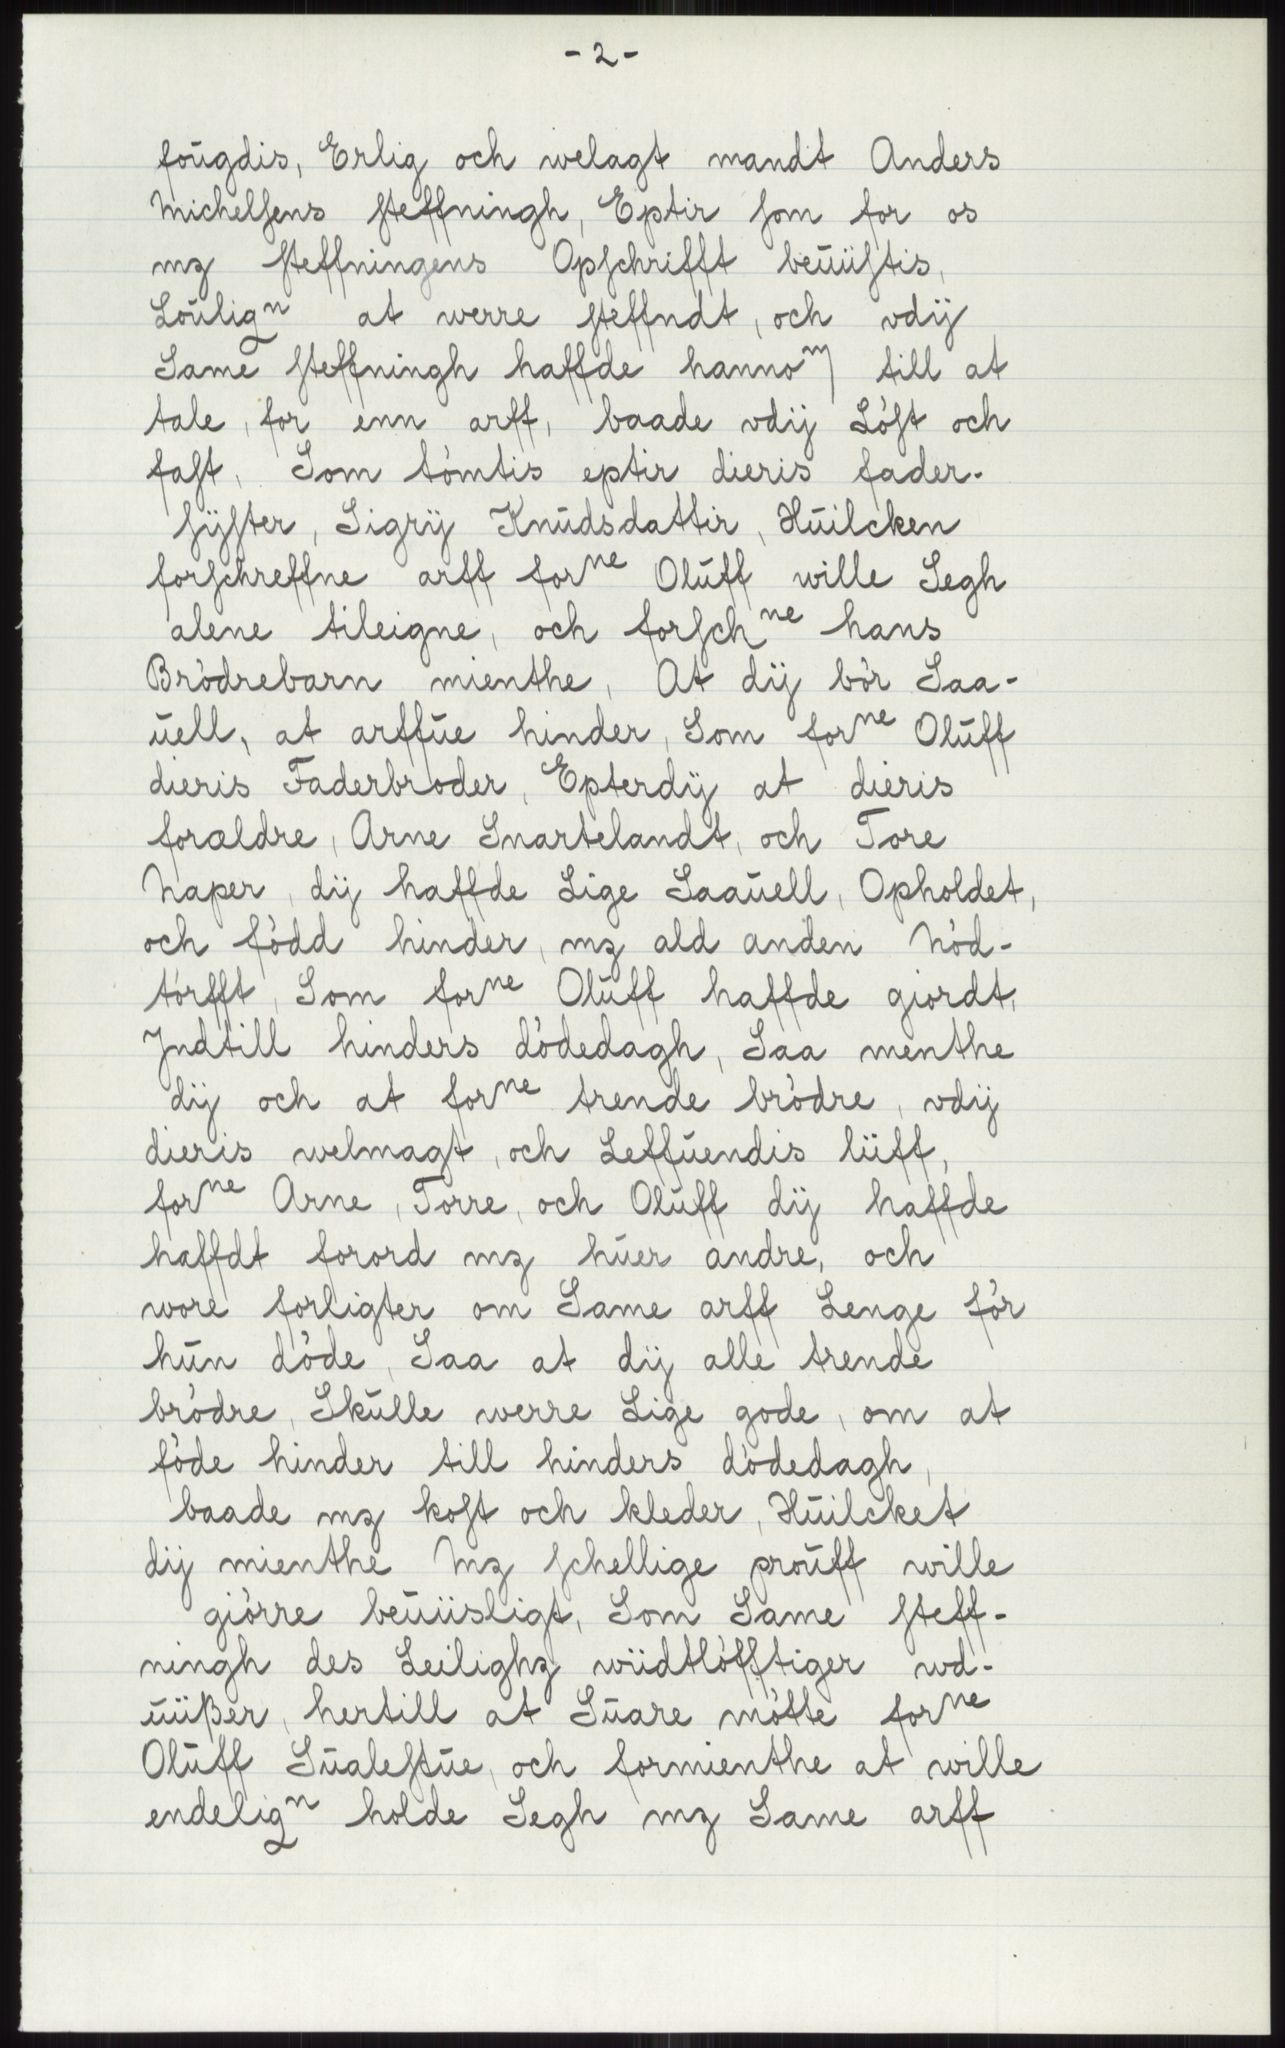 - 2 -
foūgdis, Erlig och welagt mandt Anders
Michelsens steffningh, Eptir som for os
mz steffningens Opschrifft beūiistis,
Loūligⁿ at werre steffndt, och vdÿ
Same steffningh haffde hannoᵐ till at
tale, for enn arff, baade vdÿ Löst och
fast, Som tömtis eptir dieris fader-
sÿster, Sigrÿ Knūdsdattir, Hūilcken
forschreffne arff forⁿᵉ Olūff wille Segh
alene tileigne, och forschⁿᵉ hans
Brödrebarn mienthe, At dÿ bör Saa-
ūell, at arffūe hinder, Som forⁿᵉ Olūff
dieris Faderbroder, Epterdÿ at dieris
forældre, Arne Snartelandt, och Tore
Naper, dÿ haffde Lige Saaūell, Opholdet,
och född hinder, mz ald anden Nöd-
törfft, Som forⁿᵉ Olūff haffde giordt,
Jndtill hinders dödedagh, Saa menthe
dÿ och at forⁿᵉ trende brödre, vdÿ
dieris welmagt, och Leffūendis liiff,
forⁿᵉ Arne, Torre, och Olūff dÿ haffde
haffdt forord mz hūer andre, och
wore forligter om Same arff Lenge för
hūn döde, Saa at dÿ alle trende
brödre, Skūlle werre Lige gode, om at
föde hinder till hinders dödedagh,
baade mz kost och kleder, Hūilcket
dÿ mienthe Mz schellige proūff wille
giörre beūiisligt, Som Same steff-
ningh des Leilighz wiidtlöfftiger wd-
ūiißer, hertill at Sūare mötte forⁿᵉ
Olūff Sūalestūe, och formienthe at wille
endeligⁿ holde Segh mz Same arff